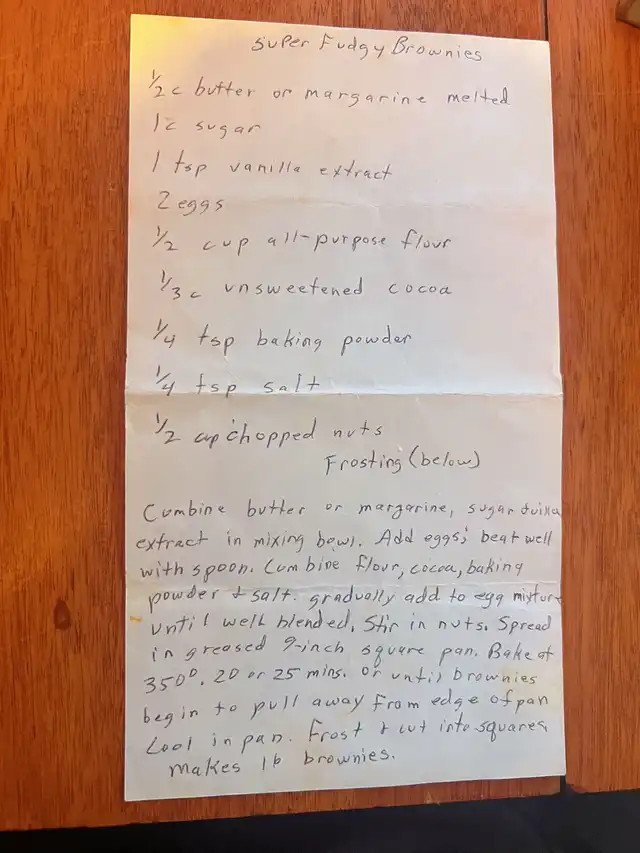 Super Fudgy Brownies
1/2 c butter or margarine melted
1 c sugar
1 tsp vanilla extract
2 eggs
1/2 cup all-purpose flour
1/3 c unsweetened cocoa
1/4 tsp baking powder
1/4 tsp salt
1/2 cup chopped nuts
Frosting (below)
Combine butter or margarine, sugar &
extract in mixing bowl. Add eggs; beat well
with spoon. Combine flour, cocoa, baking
powder & salt. gradually add to egg mixture
until well blended. Stir in nuts. Spread
in greased 9-inch square pan. Bake at
350°. 20 or 25 mins. or until brownies
begin to pull away from edge of pan
Cool in pan. Frost & cut into squares
Makes 16 brownies.